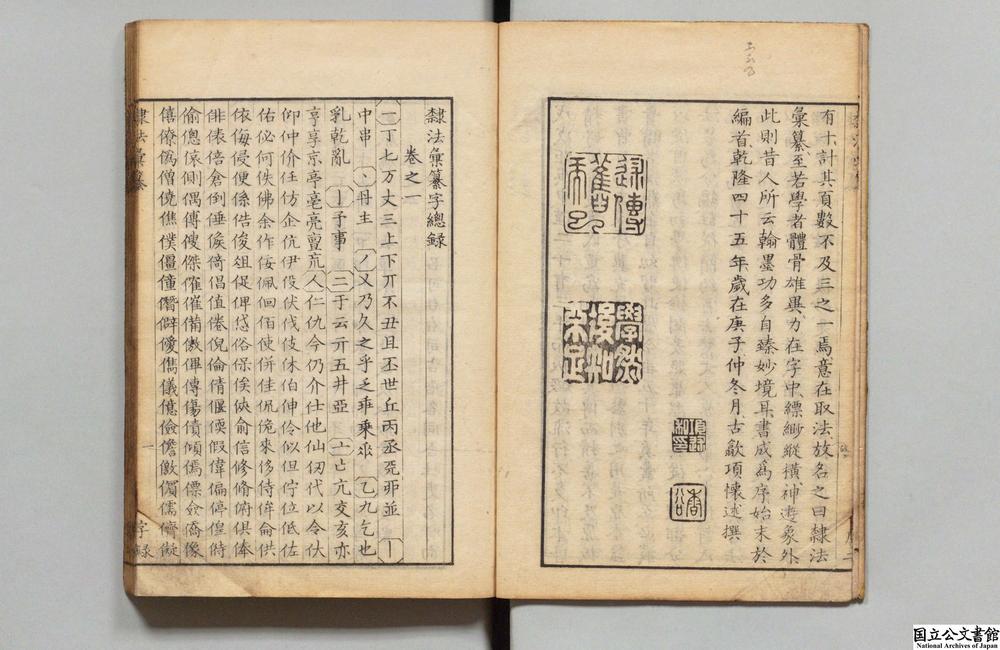 有十計其頁數不及三之一焉意在取法故名之曰隸法
彙纂至若學者體骨雄異力在字中縹緲縱橫神遊象外
此則昔人所云翰墨功多自臻妙境耳書成爲序始末於
編首乾隆四十五年歲在庚子仲冬月古歙項懷述撰
學然
後知
不足
隸法彙纂字總錄
卷之一
一丁七万丈三上下丌不丑且丕世丘丙丞
並丨
中串丶丹主丿乂乃久之乎乏乖乘乙九乞也
乳乾亂亅予事二于云亓五井亞亠亡亢交亥亦
亨享京亭亳亮亶人仁仇今仍介仕他仙仞代以令
仰仲价任仿企伉伊伋伏伐伎休伯伸伶似但佇位低佐
佑佖何佚佛余作佞佩佪佰使併佳侃來侈侍侔侖供
依侮侵便係俊俎促俾俗保俟俠俞信修脩俯俱俸
俳俵倍倉倒倕候倚倡值倦倪倫倩偃假偉偏停偟時
偷傯側偶傅傑傕催備傲傳傷債傾僑像
僖僚僞僧僥僬僕僵僮僭僻儁儀億儉儋儆儒儕儗
隸法彙纂
一
字錄
国立公文書館
National Archives of Japan